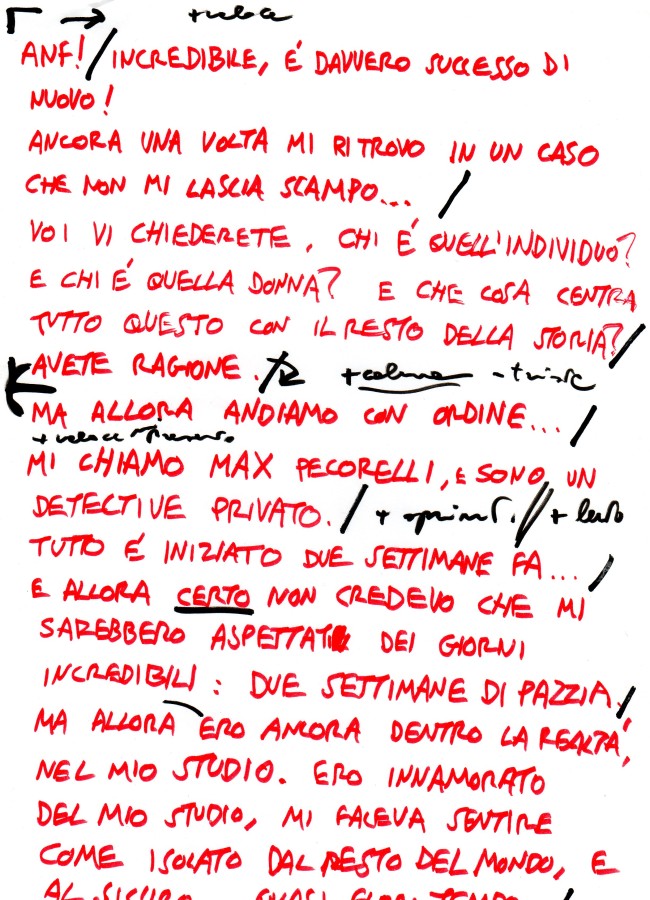 + veloce
ANF! / INCREDIBILE, É DAVVERO SUCCESSO DI
NUOVO!
ANCORA UNA VOLTA MI RITROVO IN UN CASO
CHE NON MI LASCIA SCAMPO... /
VOI VI CHIEDERETE, CHI É QUELL'INDIVIDUO?
E CHI É QUELLA DONNA? E CHE COSA CENTRA
TUTTO QUESTO CON IL RESTO DELLA STORIA? /
AVETE RAGIONE. / + calmo - triste
MA ALLORA ANDIAMO CON ORDINE... /
+ veloce
MI CHIAMO MAX PECORELLI, E SONO UN
DETECTIVE PRIVATO. / + // + lento
TUTTO É INIZIATO DUE SETTIMANE FA... /
E ALLORA CERTO NON CREDEVO CHE MI
SAREBBERO ASPETTATI DEI GIORNI
INCREDIBILI: DUE SETTIMANE DI PAZZIA. /
MA ALLORA ERO ANCORA DENTRO LA REALTÁ,
NEL MIO STUDIO. ERO INNAMORATO
DEL MIO STUDIO, MI FACEVA SENTIRE
COME ISOLATO DAL RESTO DEL MONDO, E
AL SICURO QUASI FUORI TEMPO